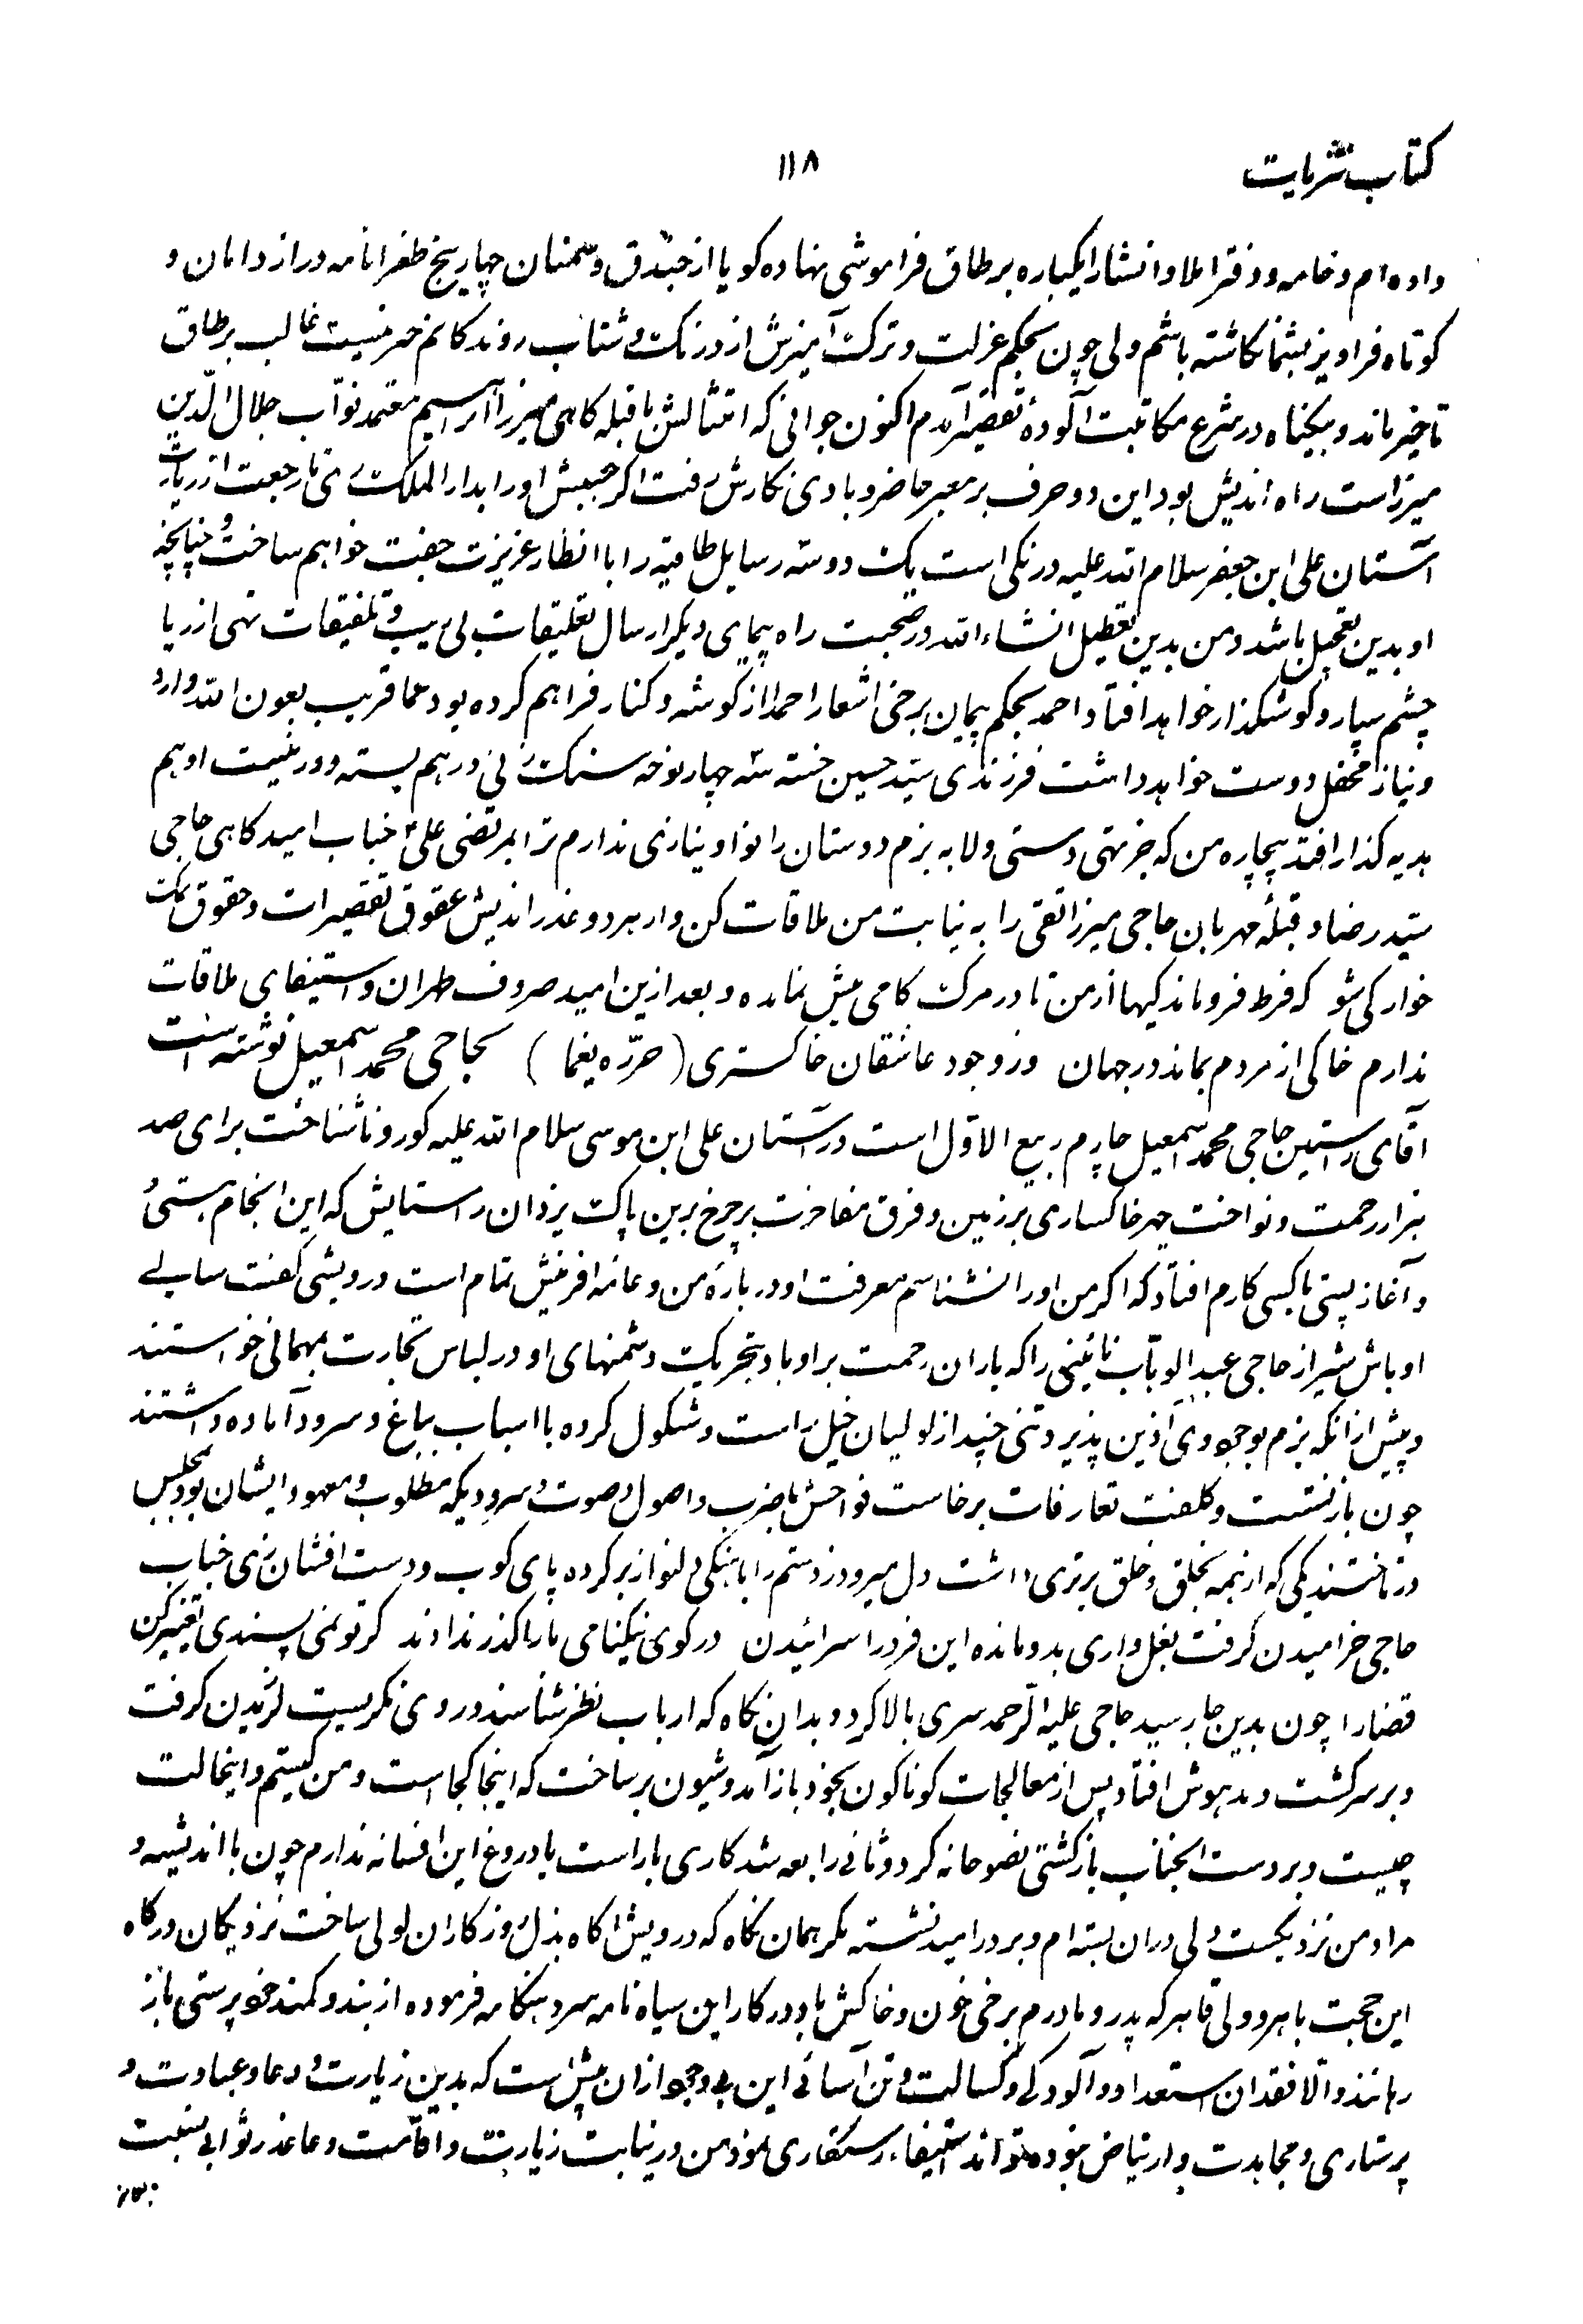 کتاب نثریات
۱۱۸
داده‌ام و خامه و دفتر املا و انشا را یکباره بر طاق فراموشی نهاده کویا از جندق و سمنان چهار پنج طغرا نامه دراز دامان و
کوتاه فراویز بشما نکاشته باشم ولی چون بحکم عزلت و ترک آمیزش از درنک و شتاب روندکانم خبر نیست غالب بر طاق
تاخیر ماند و بیکناه در شرع مکاتبت آلودهٔ تقصیر آمدم اکنون جوانی که امتثالش با قبله کاهی میرزا ابراسیم معتمد نوّاب جلال الدّین
میرزاست راه اندیش بود این دو حرف بر معبر حاضر و بادی نکارش رفت اکر جنبش او را بدار الملک ری تا رجعت از زیارت
آستان علی ابن جعفر سلام الله علیه درنکی است یک دو سه رسایل طاقیه را با انظار عزیزت جفت خواهم ساخت و چنانچه
او بدین تعجیل باشد و من بدین تعطیل انشاء الله در صحبت راه پیمای دیکر ارسال تعلیقات بی ریب و تلفیقات تهی از ریا
چشم سپار و کوشکذار خواهد افتاد احمد بحکم پیمان برخی اشعار احمدا از کوشه و کنار فراهم کرده بود عما قریب بعون الله وارد
و نیاز محفل دوست خواهد داشت فرزندی سیّد حسین خسته سه چهار نوحه سنک زنی درهم بسته و در نیت او هم
هدیه کذار افتد بیچاره من که جز تهی دستی و لابه بزم دوستان را نوا و نیازی ندارم ترا بمرتضی علیّ جناب امیدکاهی حاجی
سیّد رضا و قبلهٔ مهربان حاجی میرزا تقی را به نیابت من ملاقات کن و از هر دو عذر اندیش عقوق تقصیرات و حقوق نمک
خوارکی شو که فرط فروماندکیها از من تا در مرک کامی بیش نمانده و بعد از این امید صروف طهران و استیفای ملاقات
ندارم خاکی از مردم بماند در جهان وز وجود عاشقان خاکستری ( حرّره یغما ) بحاجی محمد اسمعیل نوشته است
آقای راستین حاجی محمد اسمعیل چارم ربیع الاوّل است در آستان علی ابن موسی سلام الله علیه کور و ناشناخت برای صد
هزار رحمت و نواخت چهر خاکساری بر زمین و فرق مفاخرت بر چرخ برین پاک یزدان را ستایش که این انجام هستی و
و آغاز پستی با کسی کارم افتاد که اکر من او را نشناسم معرفت او در بارهٔ من و عامّه افرینش تمام است درویشی کفت سالی
اوباش شیراز حاجی عبد الوهّاب نائینی را که باران رحمت بر او باد بتحریک دشمنهای او در لباس تجارت بمهمانی خواستند
و پیش از آنکه بزم بوجود وی آذین پذیرد تنی چند از لولیان خیل راست و شکول کرده با اسباب بباغ و سرود آماده داشتند
چون باز نشست و کلفت تعارفات برخاست فواحش با ضرب و اصول و صوت و سرودیکه مطلوب و معهود ایشان بود بمجلس
درتاختند یکی که از همه بخلق و خلق برتری داشت دل میرود ز دستم را باهنکی دلنواز بر کرده پای کوب و دست افشان بنزدی جناب
حاجی خرامیدن کرفت بغل واری بدو مانده این فرد را سرائیدن در کوی نیکنامی ما را کذر ندادند کر تو نمی پسندی تغییر کن
قضا را چون بدین جا رسید حاجی علیه الرّحمه سری بالا کرد و بدان نکاه که ارباب نظر شناسند در وی نکریست لرزیدن کرفت
و بر سر کشت و مدهوش افتاد پس از معالجات کوناکون بخود باز آمد و شیون بر ساخت که اینجا کجاست و من کیستم و اینحالت
چیست و بر دست آنجناب بازکشتی نصوحانه کرد و ثانی رابعه شد کاری با راست یا دروغ این افسانه ندارم چون با اندیشه و
مراد من نزدیکست دل در ان بسته‌ام و بر در امید نشسته مکر همان نکاه که درویش آکاه بذل روزکاران لولی ساخت نزدیکان درکاه
این حجت باهر و ولی قاهر که پدر و مادرم برخی خون و خاکش باد در کار این سیاه نامه سرد هنکامه فرموده از بند و کمند خود پرستی باز
رهانند و الّا فقدان استعداد و آلودکی و کسالت و تن آسائی این بی وجود از ان بیش است که بدین زیارت و دعا و عبادت و
پرستاری و مجاهدت و ارتیاض خود تواند استیفاء رستکاری نمود من در نیابت زیارت و اقامت دعا عذر ثوابی نیست